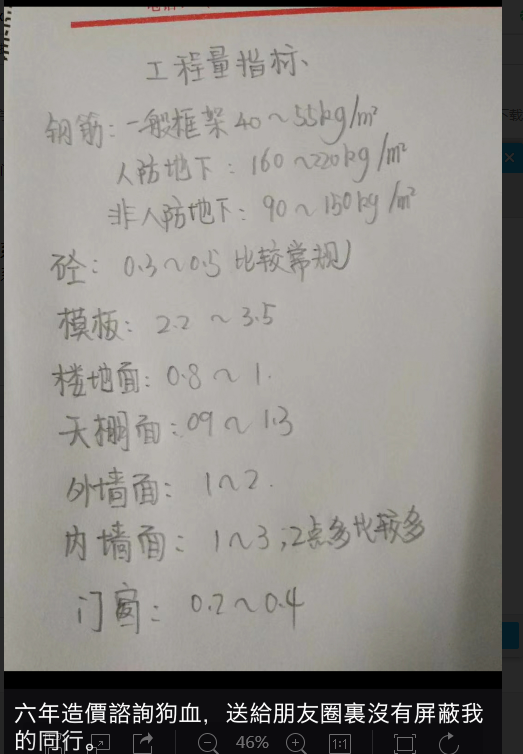 工程量指标、
钢筋：一般框架 40～55kg/m²
人防地下：160～220kg/m²
非人防地下：90～150kg/m²
砼：0.3～0.5 比较常规
模板：2.2～3.5
楼地面：0.8～1.
天棚面：09～1.3
外墙面：1～2.
内墙面：1～3，2点多比较多
门窗：0.2～0.4
六年造價諮詢狗血，送給朋友圈裏沒有屏蔽我
的同行。
46%
1:1